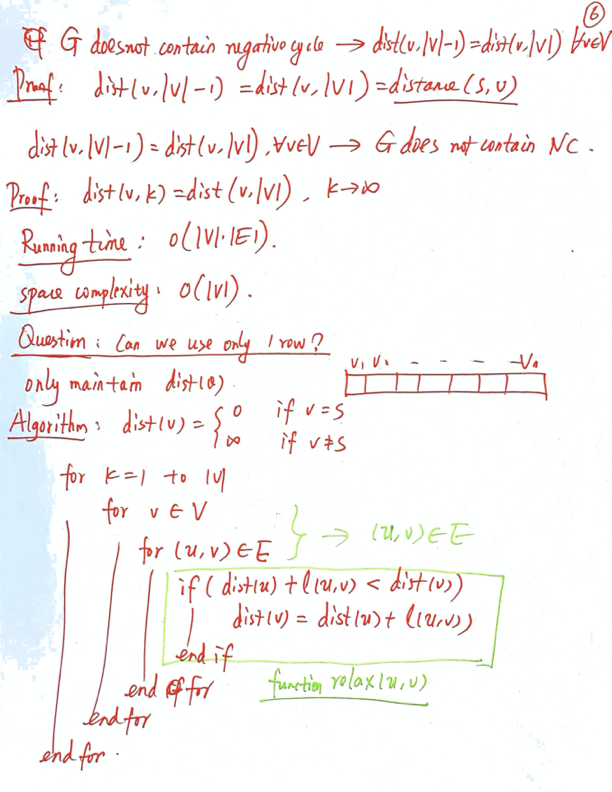 ⑥
If G does not contain negative cycle → dist(v,|V|-1)=dist(v,|V|) ∀v∈V
Proof: dist(v,|V|-1) =dist(v,|V|) =distance(s,v)
dist(v,|V|-1)=dist(v,|V|),∀v∈V → G does not contain NC.
Proof: dist(v,k)=dist(v,|V|), k→∞
Running time: O(|V|·|E|).
space complexity: O(|V|).
Question: Can we use only 1 row?
V₁ V₂ - - - - Vₙ
only maintain
Algorithm: dist(v) = { 0 if v=s
∞ if v≠s
for k=1 to |V|
for v∈V
for (u,v)∈E } → (u,v)∈E
if (dist(u)+l(u,v) < dist(v))
dist(v) = dist(u)+ l(u,v))
end if
end for function relax(u,v)
end for
end for.